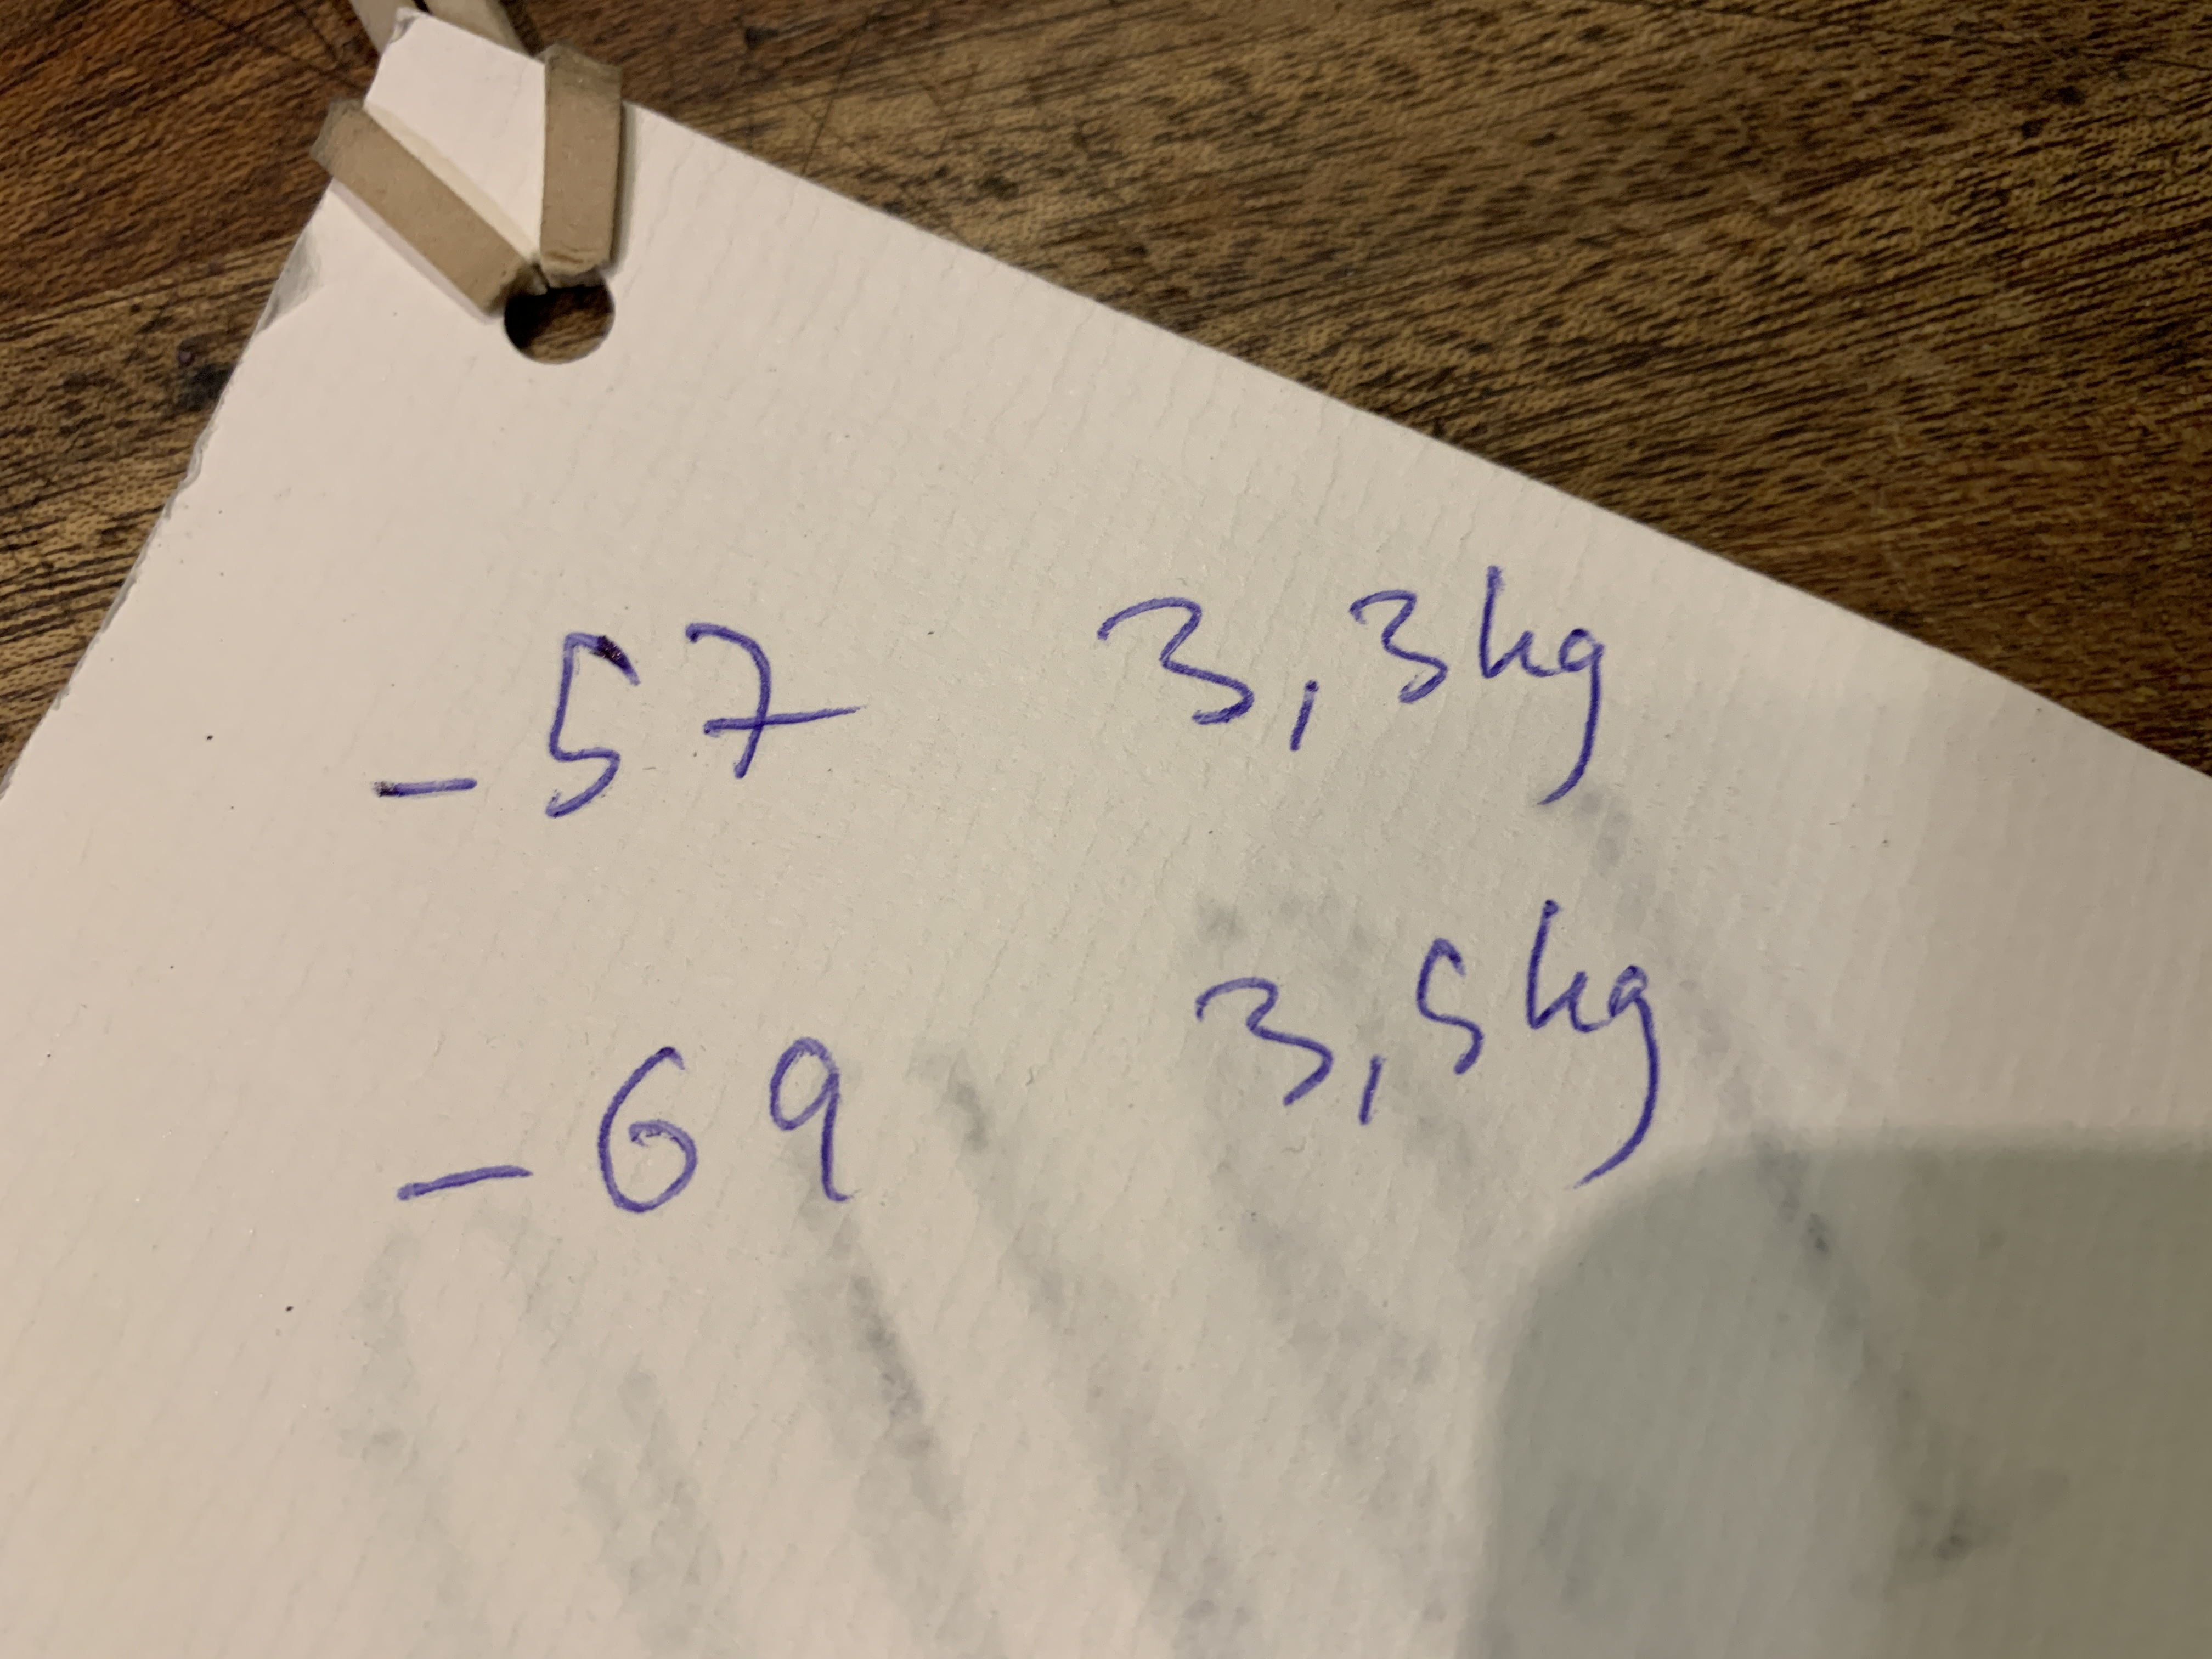 - 57 3,3kg
- 69 3,5kg